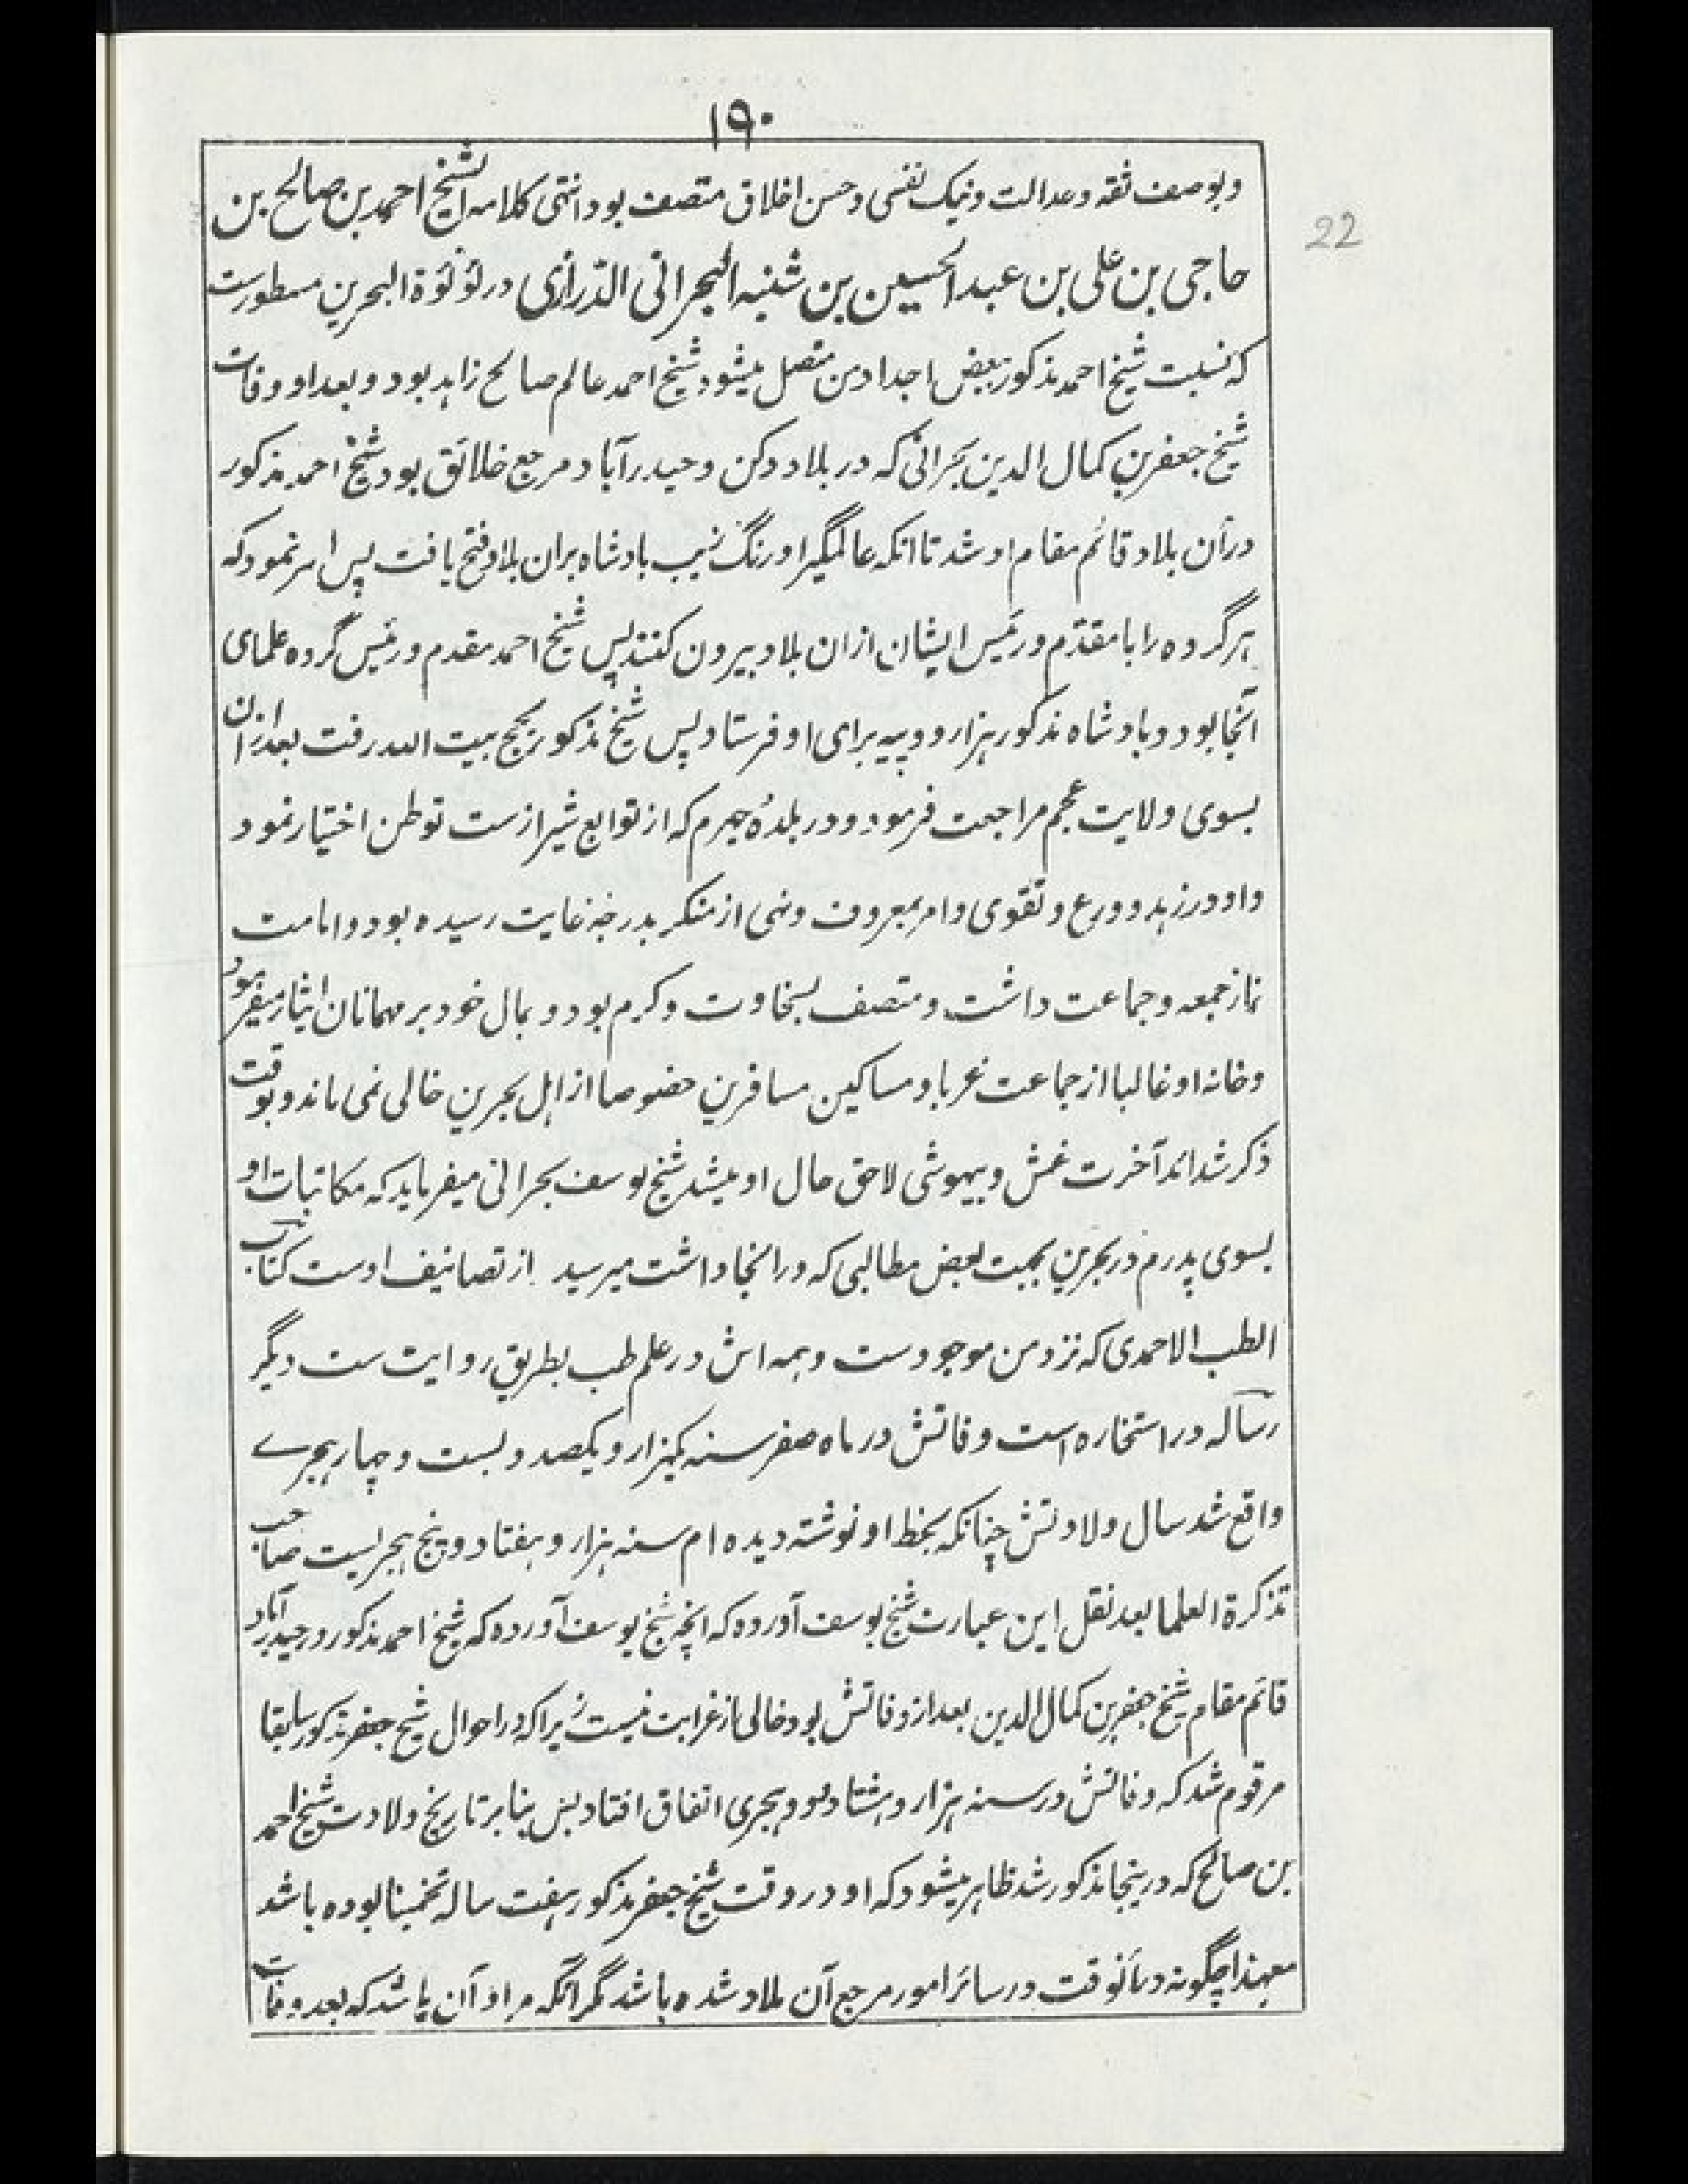 ۱۹۰
22
وبوصف ثقه وعدالت ونیک نفسی وحسن اخلاق متصف بود انتهی کلامه الشیخ احمد بن صالح بن
حاجی بن علی بن عبد الحسین بن شنبه البحرانی الدرازی در لؤلؤة البحرین مسطورست
که نسبت شیخ احمد مذکور ببعض اجداد من متصل میشود شیخ احمد عالم صالح زاهد بود و بعد او وفات
شیخ جعفر بن کمال الدین بحرانی که در بلاد دکن وحیدرآباد مرجع خلائق بود شیخ احمد مذکور
درآن بلاد قائم مقام او شد تا انکه عالمگیر اورنگ زیب بادشاه بران بلاد فتح یافت پس امر نمود که
هر گروه را با مقدم ورئیس ایشان ازان بلاد بیرون کنند پس شیخ احمد مقدم ورئیس گروه علمای
آنجا بود و بادشاه مذکور هزار روپیه برای او فرستاد پس شیخ مذکور بحج بیت الله رفت بعد ازان
بسوی ولایت عجم مراجعت فرمود ودر بلدهٔ جهرم که از توابع شیرازست توطن اختیار نمود
واو در زهد وورع وتقوی وامر بمعروف ونهی از منکر بدرجهٔ غایت رسیده بود وامامت
نماز جمعه وجماعت داشت ومتصف بسخاوت وکرم بود وبمال خود بر مهمانان ایثار میفرمود
وخانه او غالبا از جماعت غربا ومساکین مسافرین خصوصا از اهل بحرین خالی نمی ماند وبوقت
ذکر شدائد آخرت غش وبیهوشی لاحق حال او میشد شیخ یوسف بحرانی میفرماید که مکاتبات او
بسوی پدرم در بحرین بجهت بعض مطالبی که در انجا داشت میرسید از تصانیف اوست کتاب
الطب الاحمدی که نزد من موجودست وهمه اش در علم طب بطریق روایت ست دیگر
رساله در استخاره است وفاتش در ماه صفر سنه یکهزار ویکصد وبست وچهار هجرے
واقع شد سال ولادتش چنانکه بخط او نوشته دیده ام سنه هزار وهفتاد وپنج هجریست صاحب
تذکرة العلما بعد نقل این عبارت شیخ یوسف آورده که انچه شیخ یوسف آورده که شیخ احمد مذکور در حیدرآباد
قائم مقام شیخ جعفر بن کمال الدین بعد از وفاتش بود خالی از غرابت نیست زیرا که در احوال شیخ جعفر مذکور سابقا
مرقوم شد که وفاتش در سنه هزار وهشتاد ودو هجری اتفاق افتاد پس بنابر تاریخ ولادت شیخ احمد
بن صالح که در ینجا مذکور شد ظاهر میشود که او در وقت شیخ جعفر مذکور هفت ساله تخمینا بوده باشد
معهذا چگونه در آنوقت در سائر امور مرجع آن بلاد شده باشد مگر آنکه مراد آن باشد که بعد وفات